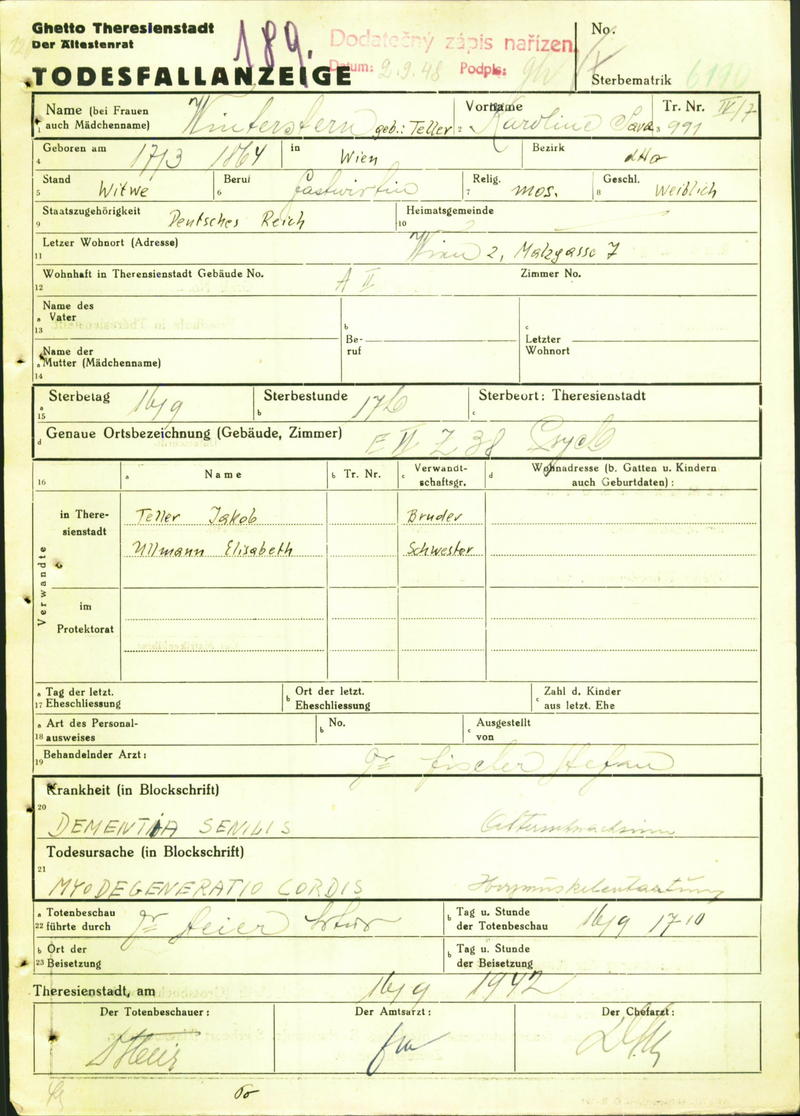 Ghetto Theresienstadt
Der Ältestenrat
189.
Dodatečný zápis nařízen.
Datum: 2.9.48 Podpis:
No.
TODESFALLANZEIGE
Sterbematrik 6190
Name (bei Frauen
1 auch Mädchenname) Winterstern geb.: Teller
2 Vorname Karoline Sara
3 Tr. Nr. IV/7 991
4 Geboren am 17/3 1864 in Wien Bezirk dtto
5 Stand Witwe 6 Beruf Gastwirtin 7 Relig. mos. 8 Geschl. Weiblich
9 Staatszugehörigkeit Deutsches Reich 10 Heimatsgemeinde
11 Letzer Wohnort (Adresse) Wien 2, Malzgasse 7
12 Wohnhaft in Therensienstadt Gebäude No. A II Zimmer No.
Name des
a Vater
13
b Beruf
c Letzter
Wohnort
Name der
a Mutter (Mädchenname)
14
a 15 Sterbetag 16/9 b Sterbestunde 17h c Sterbeort: Theresienstadt
d Genaue Ortsbezeichnung (Gebäude, Zimmer) E II Z 38
16 a Name b Tr. Nr. c Verwandt-
schaftsgr. d Wohnadresse (b. Gatten u. Kindern
auch Geburtdaten):
Verwandte
in There-
sienstadt
Teller Jakob Bruder
Ullmann Elisabeth Schwester
im
Protektorat
a Tag der letzt.
17 Eheschliessung
b Ort der letzt.
Eheschliessung
c Zahl d. Kinder
aus letzt. Ehe
a Art des Personal-
18 ausweises
b No.
c Ausgestellt
von
19 Behandelnder Arzt: Dr Fischer Stefan
20 Krankheit (in Blockschrift)
DEMENTIA SENILIS Altersschwachsinn
21 Todesursache (in Blockschrift)
MYODEGENERATIO CORDIS Herzmuskelentartung
a Totenbeschau
22 führte durch Dr
b Tag u. Stunde
der Totenbeschau 16/9 17 10
b Ort der
23 Beisetzung
b Tag u. Stunde
der Beisetzung
Theresienstadt, am 16/9 1942
Der Totenbeschauer: Der Amtsarzt: Der Chefarzt: